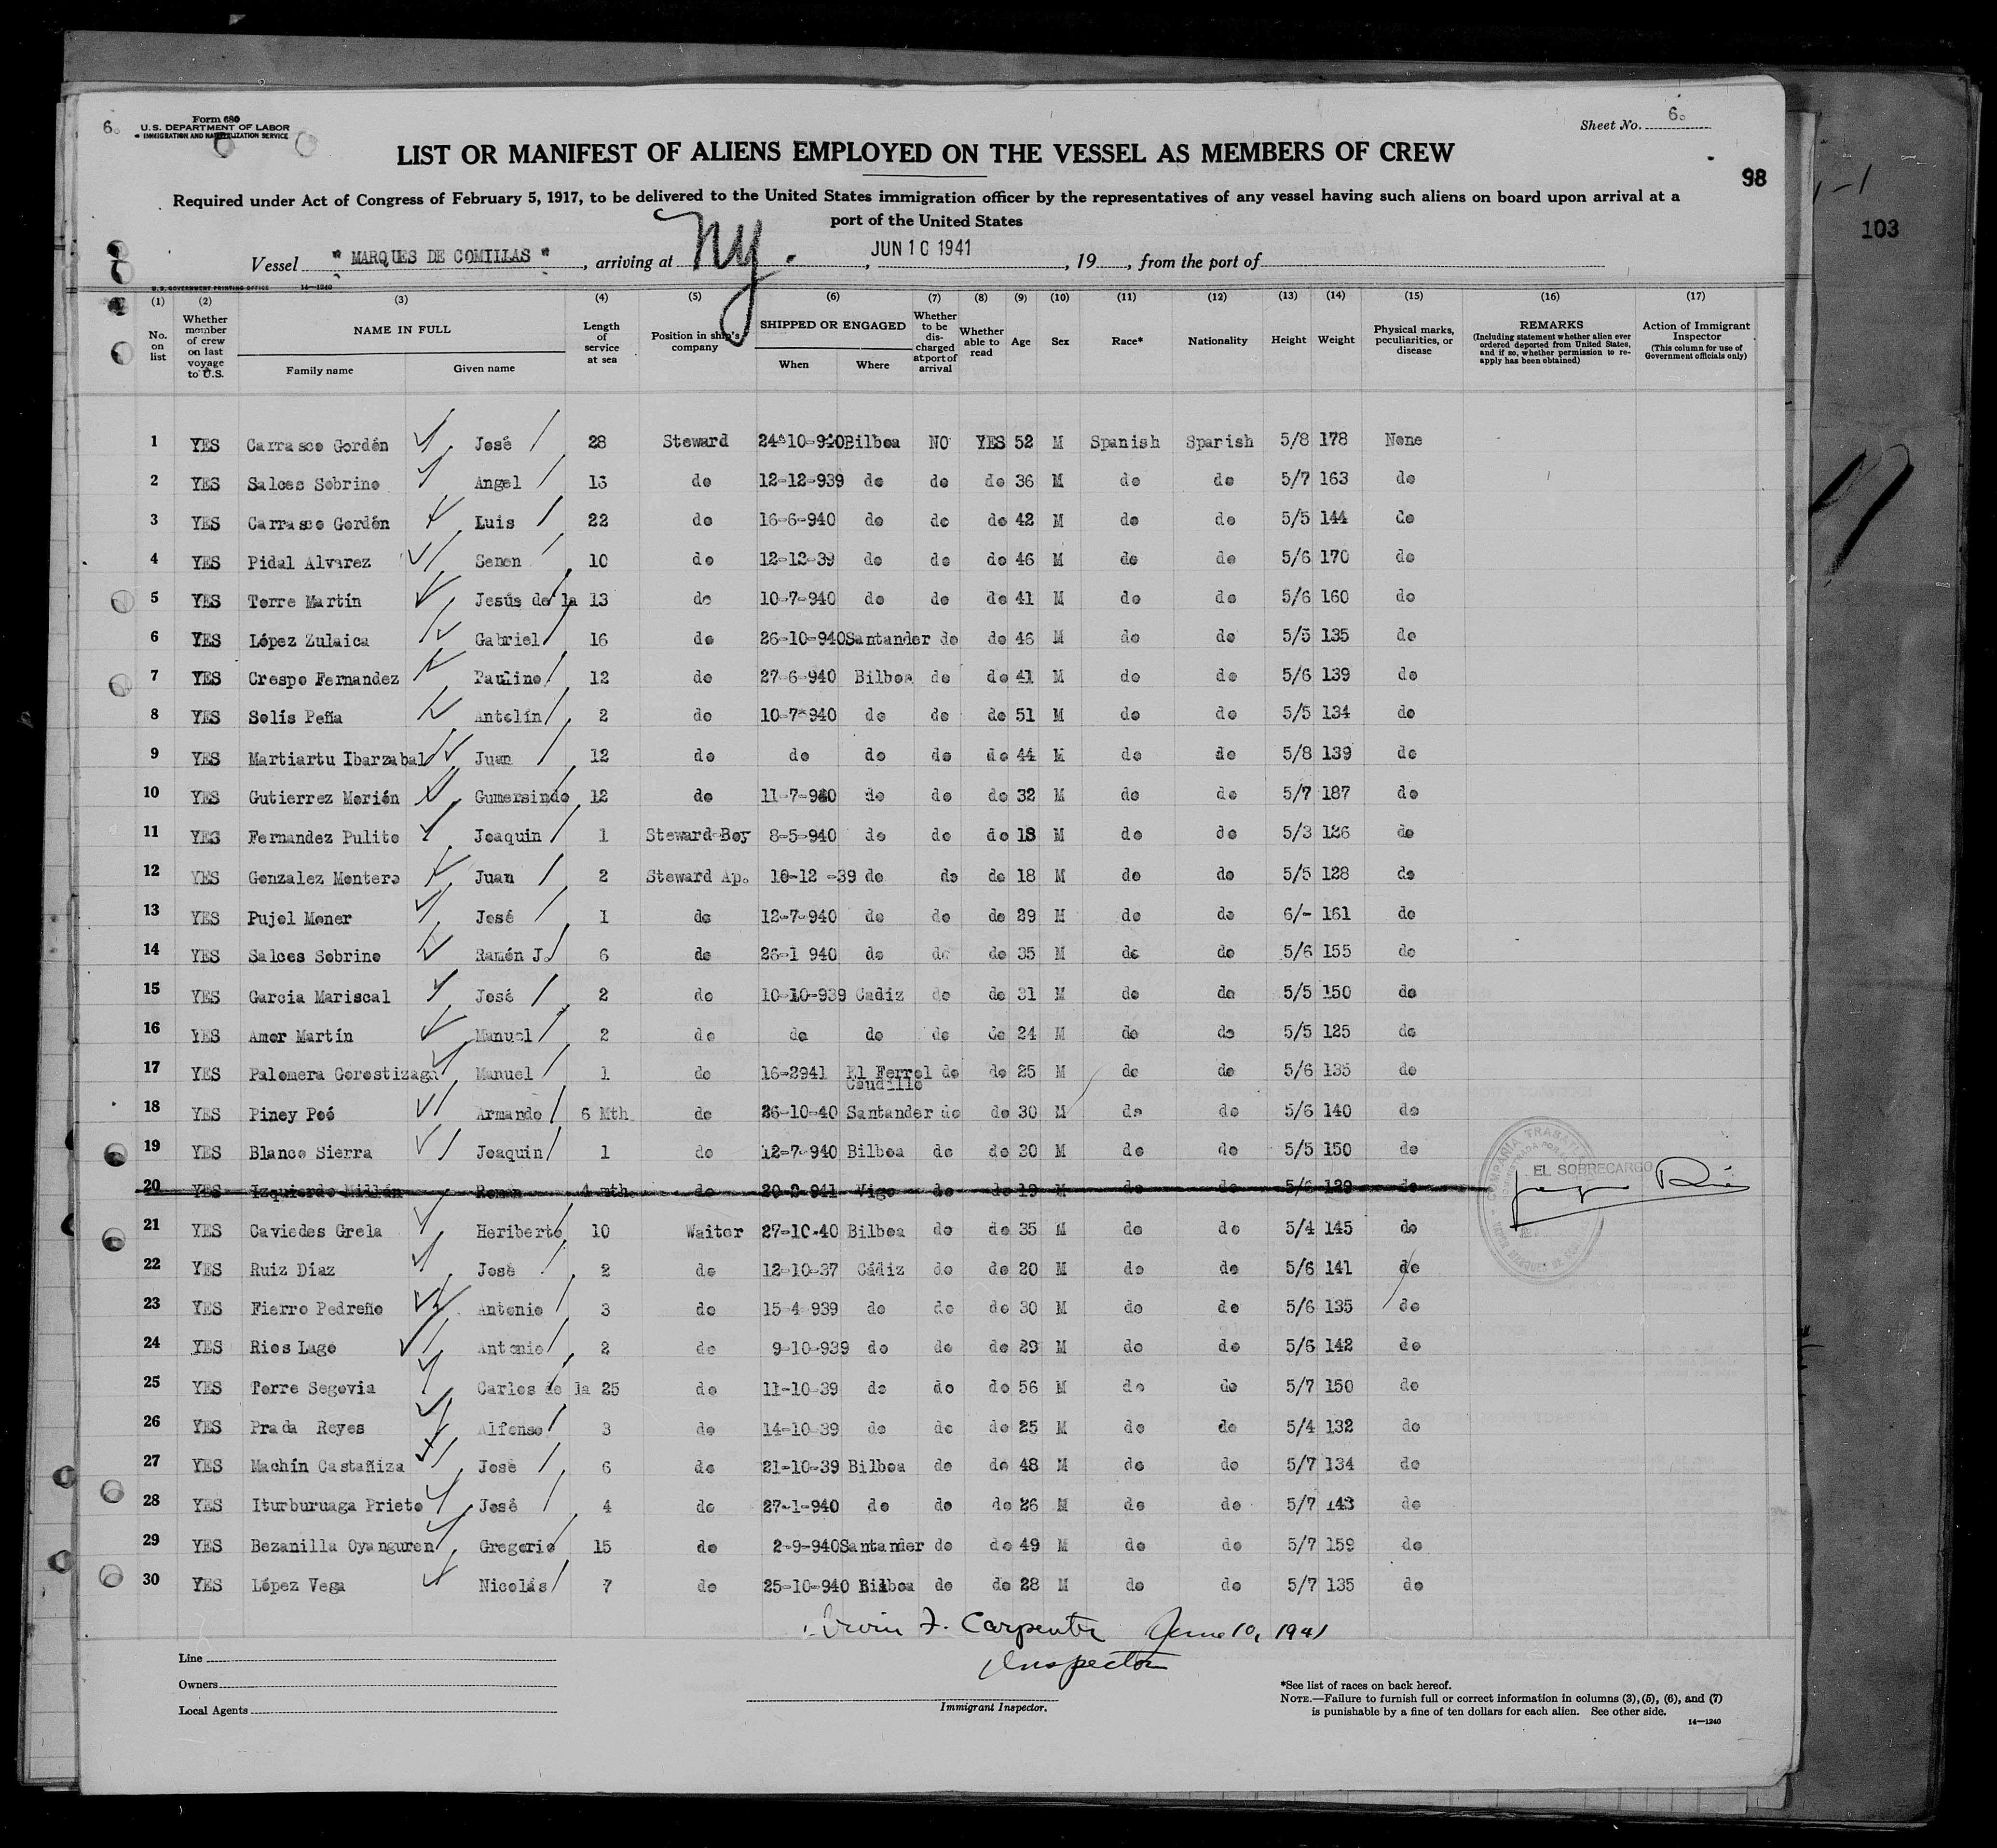 6.
Form 680
U.S. DEPARTMENT OF LABOR
IMMIGRATION AND NATURALIZATION SERVICE
Sheet No. 6.
LIST OR MANIFEST OF ALIENS EMPLOYED ON THE VESSEL AS MEMBERS OF CREW
98
103
Required under Act of Congress of February 5, 1917, to be delivered to the United States immigration officer by the representatives of any vessel having such aliens on board upon arrival at a
port of the United States
Vessel " MARQUES DE COMILLAS ", arriving at Ny. , JUN 10 1941 , 19 , from the port of
U. S. GOVERNMENT PRINTING OFFICE 14—1240
(1) (2) (3) (4) (5) (6) (7) (8) (9) (10) (11) (12) (13) (14) (15) (16) (17)
No. on list
Whether member of crew on last voyage to U.S.
NAME IN FULL
Family name Given name
Length of service at sea
Position in ship's company
SHIPPED OR ENGAGED
When Where
Whether to be discharged at port of arrival
Whether able to read
Age Sex Race* Nationality Height Weight
Physical marks, peculiarities, or disease
REMARKS
(Including statement whether alien ever ordered deported from United States, and if so, whether permission to reapply has been obtained)
Action of Immigrant Inspector
(This column for use of Government officials only)
1 YES Carrasco Gordón José 28 Steward 24-10-940 Bilboa NO YES 52 M Spanish Spanish 5/8 178 None
2 YES Salces Sobrino Angel 13 do 12-12-939 do do do 36 M do do 5/7 163 do
3 YES Carrasco Gordón Luis 22 do 16-6-940 do do do 42 M do do 5/5 144 do
4 YES Pidal Alvarez Senen 10 do 12-12-39 do do do 46 M do do 5/6 170 do
5 YES Torre Martín Jesús de la 13 do 10-7-940 do do do 41 M do do 5/6 160 do
6 YES López Zulaica Gabriel 16 do 26-10-940 Santander do do 46 M do do 5/5 135 do
7 YES Crespo Fernandez Paulino 12 do 27-6-940 Bilboa do do 41 M do do 5/6 139 do
8 YES Solís Peña Antolín 2 do 10-7-940 do do do 51 M do do 5/5 134 do
9 YES Martiartu Ibarzabal Juan 12 do do do do do 44 M do do 5/8 139 do
10 YES Gutierrez Morión Gumersindo 12 do 11-7-940 do do do 32 M do do 5/7 187 do
11 YES Fernandez Pulito Joaquin 1 Steward Boy 8-5-940 do do do 18 M do do 5/3 126 do
12 YES Gonzalez Montero Juan 2 Steward Ap. 10-12 -39 do do do 18 M do do 5/5 128 do
13 YES Pujol Moner José 1 do 12-7-940 do do do 29 M do do 6/- 161 do
14 YES Salces Sobrino Ramón J. 6 do 26-1 940 do do do 35 M do do 5/6 155 do
15 YES Garcia Mariscal José 2 do 10-10-939 Cadiz do do 31 M do do 5/5 150 do
16 YES Amor Martín Manuel 2 do do do do do 24 M do do 5/5 125 do
17 YES Palomera Gorostizaga Manuel 1 do 16-2941 El Ferrol Caudillo do do 25 M do do 5/6 135 do
18 YES Piney Peó Armando 6 Mth do 26-10-40 Santander do do 30 M do do 5/6 140 do
19 YES Blanco Sierra Joaquin 1 do 12-7-940 Bilboa do do 30 M do do 5/5 150 do
20 YES Izquierdo Millán Roman 4 mth do 20-2-941 Vigo do do 19 M do do 5/6 129 do
EL SOBRECARGO
21 YES Caviedes Grela Heriberto 10 Waiter 27-10-40 Bilboa do do 35 M do do 5/4 145 do
22 YES Ruiz Diaz José 2 do 12-10-37 Cádiz do do 20 M do do 5/6 141 do
23 YES Fierro Pedreño Antonio 3 do 15 4 939 do do do 30 M do do 5/6 135 do
24 YES Rios Lage Antonio 2 do 9-10-939 do do do 29 M do do 5/6 142 do
25 YES Torre Segovia Carlos de la 25 do 11-10-39 do do do 56 M do do 5/7 150 do
26 YES Prada Reyes Alfonso 3 do 14-10 39 do do do 25 M do do 5/4 132 do
27 YES Machín Castañiza José 6 do 21-10-39 Bilboa do do 48 M do do 5/7 134 do
28 YES Iturburuaga Prieto José 4 do 27-1-940 do do do 26 M do do 5/7 143 do
29 YES Bezanilla Oyanguren Gregorio 15 do 2-9-940 Santander do do 49 M do do 5/7 159 do
30 YES López Vega Nicolás 7 do 25-10-940 Bilboa do do 28 M do do 5/7 135 do
Irwin F. Carpenter June 10, 1941
Inspector
Line
Owners
Local Agents
Immigrant Inspector.
*See list of races on back hereof.
NOTE.—Failure to furnish full or correct information in columns (3), (5), (6), and (7)
is punishable by a fine of ten dollars for each alien. See other side.
14—1240